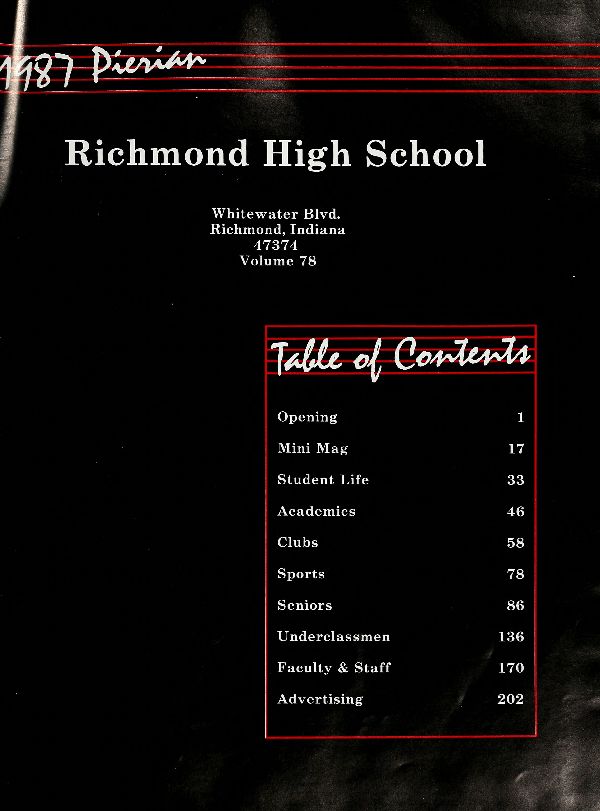 1987 Pierian
Richmond High School
Whitewater Blvd.
Richmond, Indiana
47374
Volume 78
Table of Contents
Opening 1
Mini Mag 17
Student Life 33
Academics 46
Clubs 58
Sports 78
Seniors 86
Underclassmen 136
Faculty & Staff 170
Advertising 202